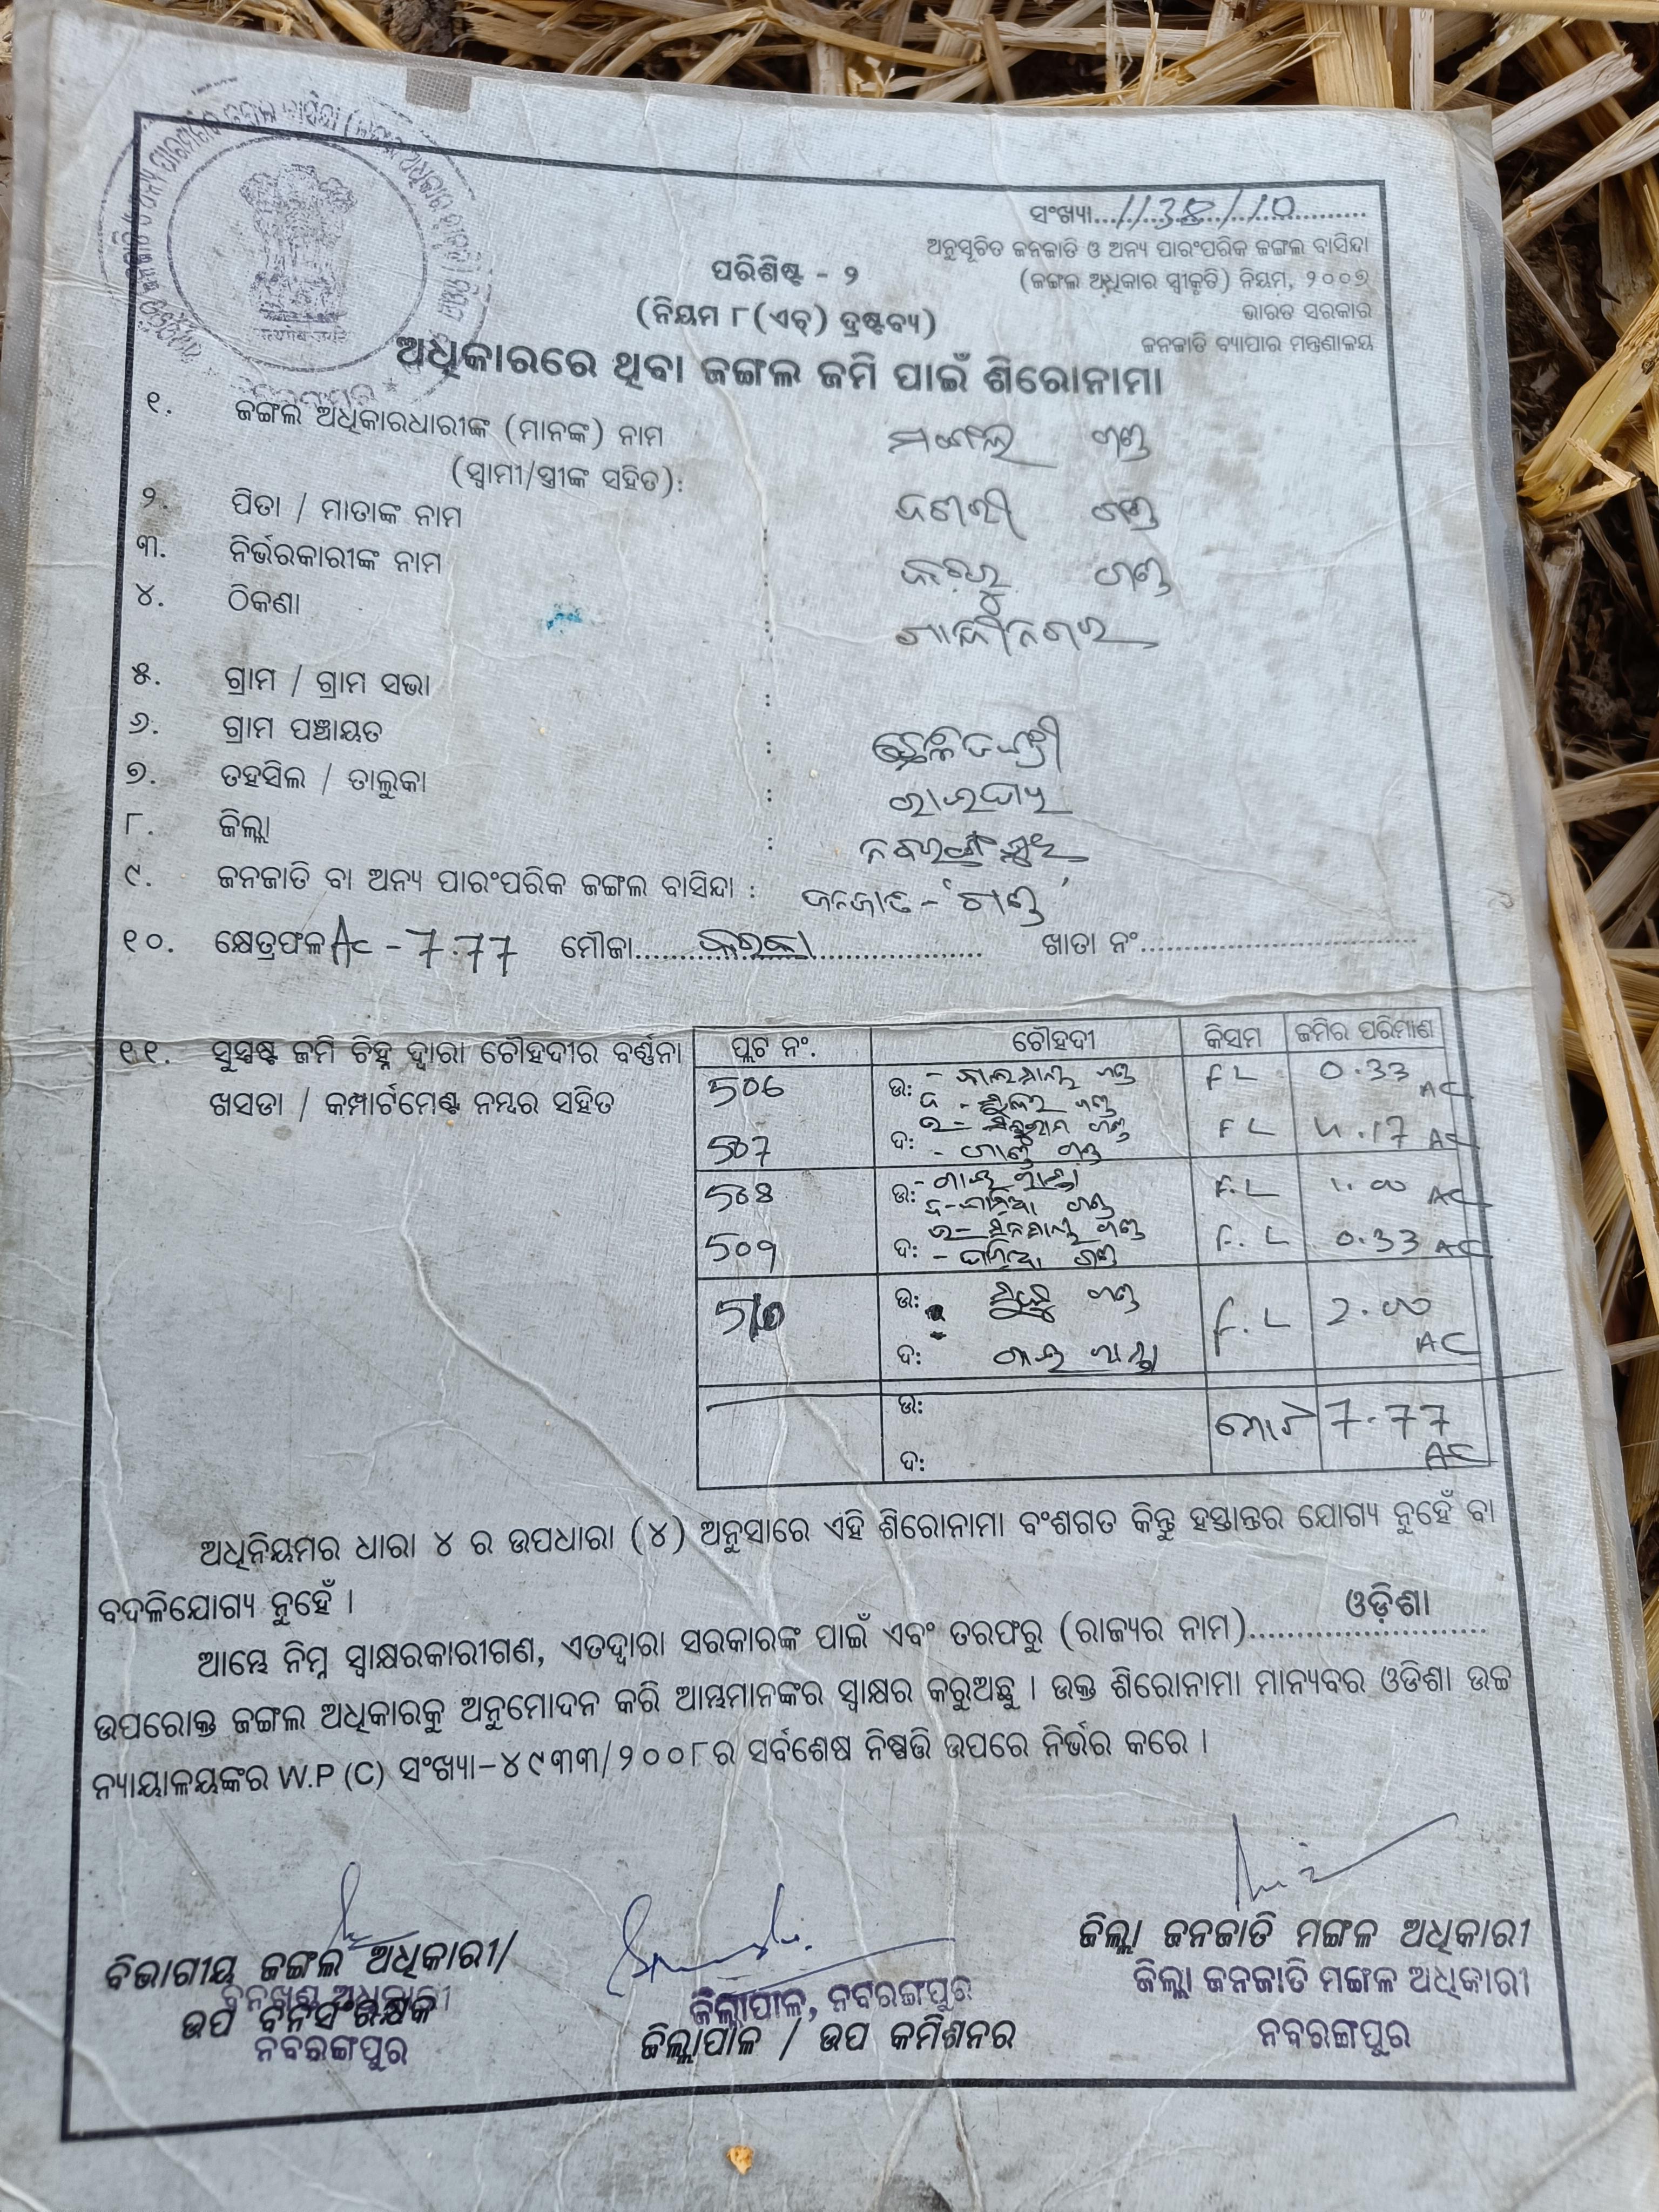 ସଂଖ୍ୟା....1138/10............
ଅନୁସୂଚିତ ଜନଜାତି ଓ ଅନ୍ୟ ପାରଂପରିକ ଜଙ୍ଗଲ ବାସିନ୍ଦା
(ଜଙ୍ଗଲ ଅଧିକାର ସ୍ୱୀକୃତି) ନିୟମ, ୨୦୦୭
ଭାରତ ସରକାର
ଜନଜାତି ବ୍ୟାପାର ମନ୍ତ୍ରଣାଳୟ
ପରିଶିଷ୍ଟ - ୨
(ନିୟମ ୮(ଏଚ୍) ଦ୍ରଷ୍ଟବ୍ୟ)
ଅଧିକାରରେ ଥିବା ଜଙ୍ଗଲ ଜମି ପାଇଁ ଶିରୋନାମା
୧. ଜଙ୍ଗଲ ଅଧିକାରଧାରୀଙ୍କ (ମାନଙ୍କ) ନାମ ମଙ୍ଗଲ ଗଣ୍ଡ
(ସ୍ୱାମୀ/ସ୍ତ୍ରୀଙ୍କ ସହିତ):
୨. ପିତା / ମାତାଙ୍କ ନାମ : ଗଣ୍ଡ
୩. ନିର୍ଭରକାରୀଙ୍କ ନାମ : ଗଣ୍ଡ
୪. ଠିକଣା : ଗାନ୍ଧୀନଗର
୫. ଗ୍ରାମ / ଗ୍ରାମ ସଭା :
୬. ଗ୍ରାମ ପଞ୍ଚାୟତ :
୭. ତହସିଲ / ତାଲୁକା : ରାଇଘର
୮. ଜିଲ୍ଲା : ନବରଙ୍ଗପୁର
୯. ଜନଜାତି ବା ଅନ୍ୟ ପାରଂପରିକ ଜଙ୍ଗଲ ବାସିନ୍ଦା : ଜନଜାତି - 'ଗଣ୍ଡ'
୧୦. କ୍ଷେତ୍ରଫଳ Ac - 7.77 ମୌଜା..... ଖାତା ନଂ..............................
୧୧. ସୁସ୍ପଷ୍ଟ ଜମି ଚିହ୍ନ ଦ୍ୱାରା ଚୌହଦୀର ବର୍ଣ୍ଣନା
ଖସଡା / କମ୍ପାର୍ଟମେଣ୍ଟ ନମ୍ବର ସହିତ
ପ୍ଲଟ ନଂ. ଚୌହଦୀ କିସମ ଜମିର ପରିମାଣ
506 ଉ: ଗଣ୍ଡ FL 0.33 AC
507 ଦ: ଗଣ୍ଡ FL 4.17 AC
508 ଉ: ଗଣ୍ଡ F.L 1.00 AC
509 ଦ: ଗଣ୍ଡ F.L 0.33 AC
510 ଉ: ଗଣ୍ଡ F.L 2.00 AC
ଦ:
ଉ: ମୋଟ 7.77 AC
ଦ:
ଅଧିନିୟମର ଧାରା ୪ ର ଉପଧାରା (୪) ଅନୁସାରେ ଏହି ଶିରୋନାମା ବଂଶଗତ କିନ୍ତୁ ହସ୍ତାନ୍ତର ଯୋଗ୍ୟ ନୁହେଁ ବା
ବଦଳିଯୋଗ୍ୟ ନୁହେଁ ।
ଆମ୍ଭେ ନିମ୍ନ ସ୍ୱାକ୍ଷରକାରୀଗଣ, ଏତଦ୍ୱାରା ସରକାରଙ୍କ ପାଇଁ ଏବଂ ତରଫରୁ (ରାଜ୍ୟର ନାମ)....ଓଡ଼ିଶା....
ଉପରୋକ୍ତ ଜଙ୍ଗଲ ଅଧିକାରକୁ ଅନୁମୋଦନ କରି ଆମ୍ଭମାନଙ୍କର ସ୍ୱାକ୍ଷର କରୁଅଛୁ । ଉକ୍ତ ଶିରୋନାମା ମାନ୍ୟବର ଓଡିଶା ଉଚ୍ଚ
ନ୍ୟାୟାଳୟଙ୍କର W.P (C) ସଂଖ୍ୟା-୪୯୩୩/୨୦୦୮ର ସର୍ବଶେଷ ନିଷ୍ପତ୍ତି ଉପରେ ନିର୍ଭର କରେ ।
ବିଭାଗୀୟ ଜଙ୍ଗଲ ଅଧିକାରୀ/
ବନଖଣ୍ଡ ଅଧିକାରୀ
ଉପ ବନସଂରକ୍ଷକ
ନବରଙ୍ଗପୁର
ଜିଲ୍ଲାପାଳ, ନବରଙ୍ଗପୁର
ଜିଲ୍ଲାପାଳ / ଉପ କମିଶନର
ଜିଲ୍ଲା ଜନଜାତି ମଙ୍ଗଳ ଅଧିକାରୀ
ଜିଲ୍ଲା ଜନଜାତି ମଙ୍ଗଳ ଅଧିକାରୀ
ନବରଙ୍ଗପୁର